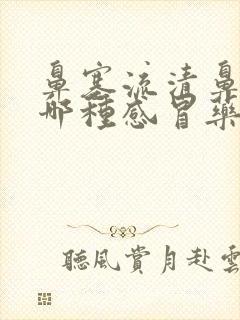 鼻塞流清鼻
哪種感冒藥
聽風賞月赴雲